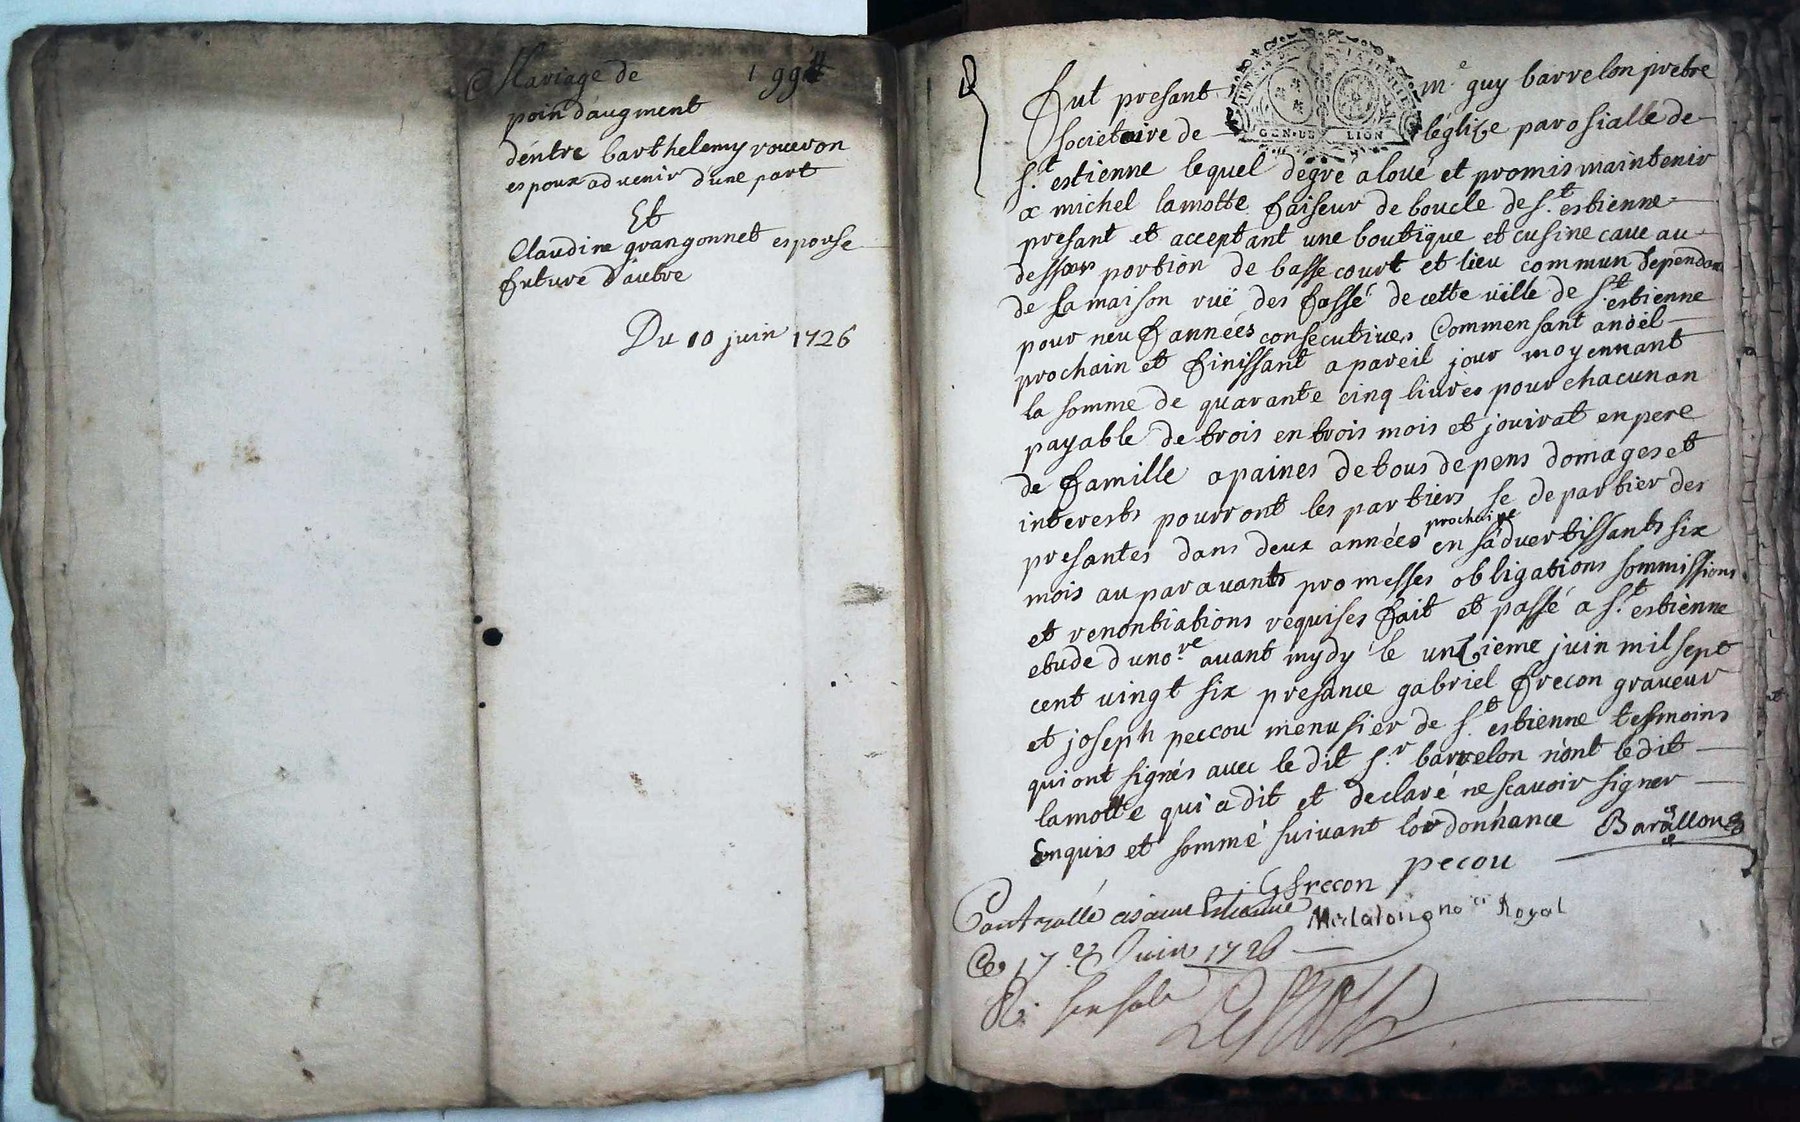 Mariage de 199tt
poin d'augment
d'entre barthelemy roueron
espoux advenir d'une part
Et
Claudine grangonnet espouse
future d'autre
Du 10 juin 1726
fut presant m.e guy barrelon prebre
societaire de l'eglise parosialle de
S.t estienne lequel degre a loué et promis maintenir
a michel lamotte faiseur de boucle de S.t estienne
presant et acceptant une boutique et cusine caue au
dessous portion de basse court et lieu commun dependan
de sa maison ruë des fossé de cette uille de S.t estienne
pour neuf années consecutiues Commensant a noël
prochain et finissant a pareil jour moyennant
la somme de quarante cinq liures pour chacun an
payable de trois en trois mois et jouirat en pere
de famille a paines de tous depens domages et
interests pourront les partiers se departier des
presantes dans deux années prochaine en s'aduertissants six
mois auparauants promesses obligations sommissions
et renontiations requises fait et passé a S.t estienne
etude du no.re auant mydy le unzieme juin mil sept
cent uingt six presance gabriel frecon graueur
et joseph peccou menusier de S.t estienne tesmoins
qui ont signés auec le dit S.r barrelon n'ont le dit
lamotte qui a dit et declaré ne scauoir signer
enquis et sommé suiuant l'ordonnance Barallon
Gfrecon pecou
Controllé a saint Estienne no.re Royal
Ce 17.e Juin 1726
GEN. DE LION